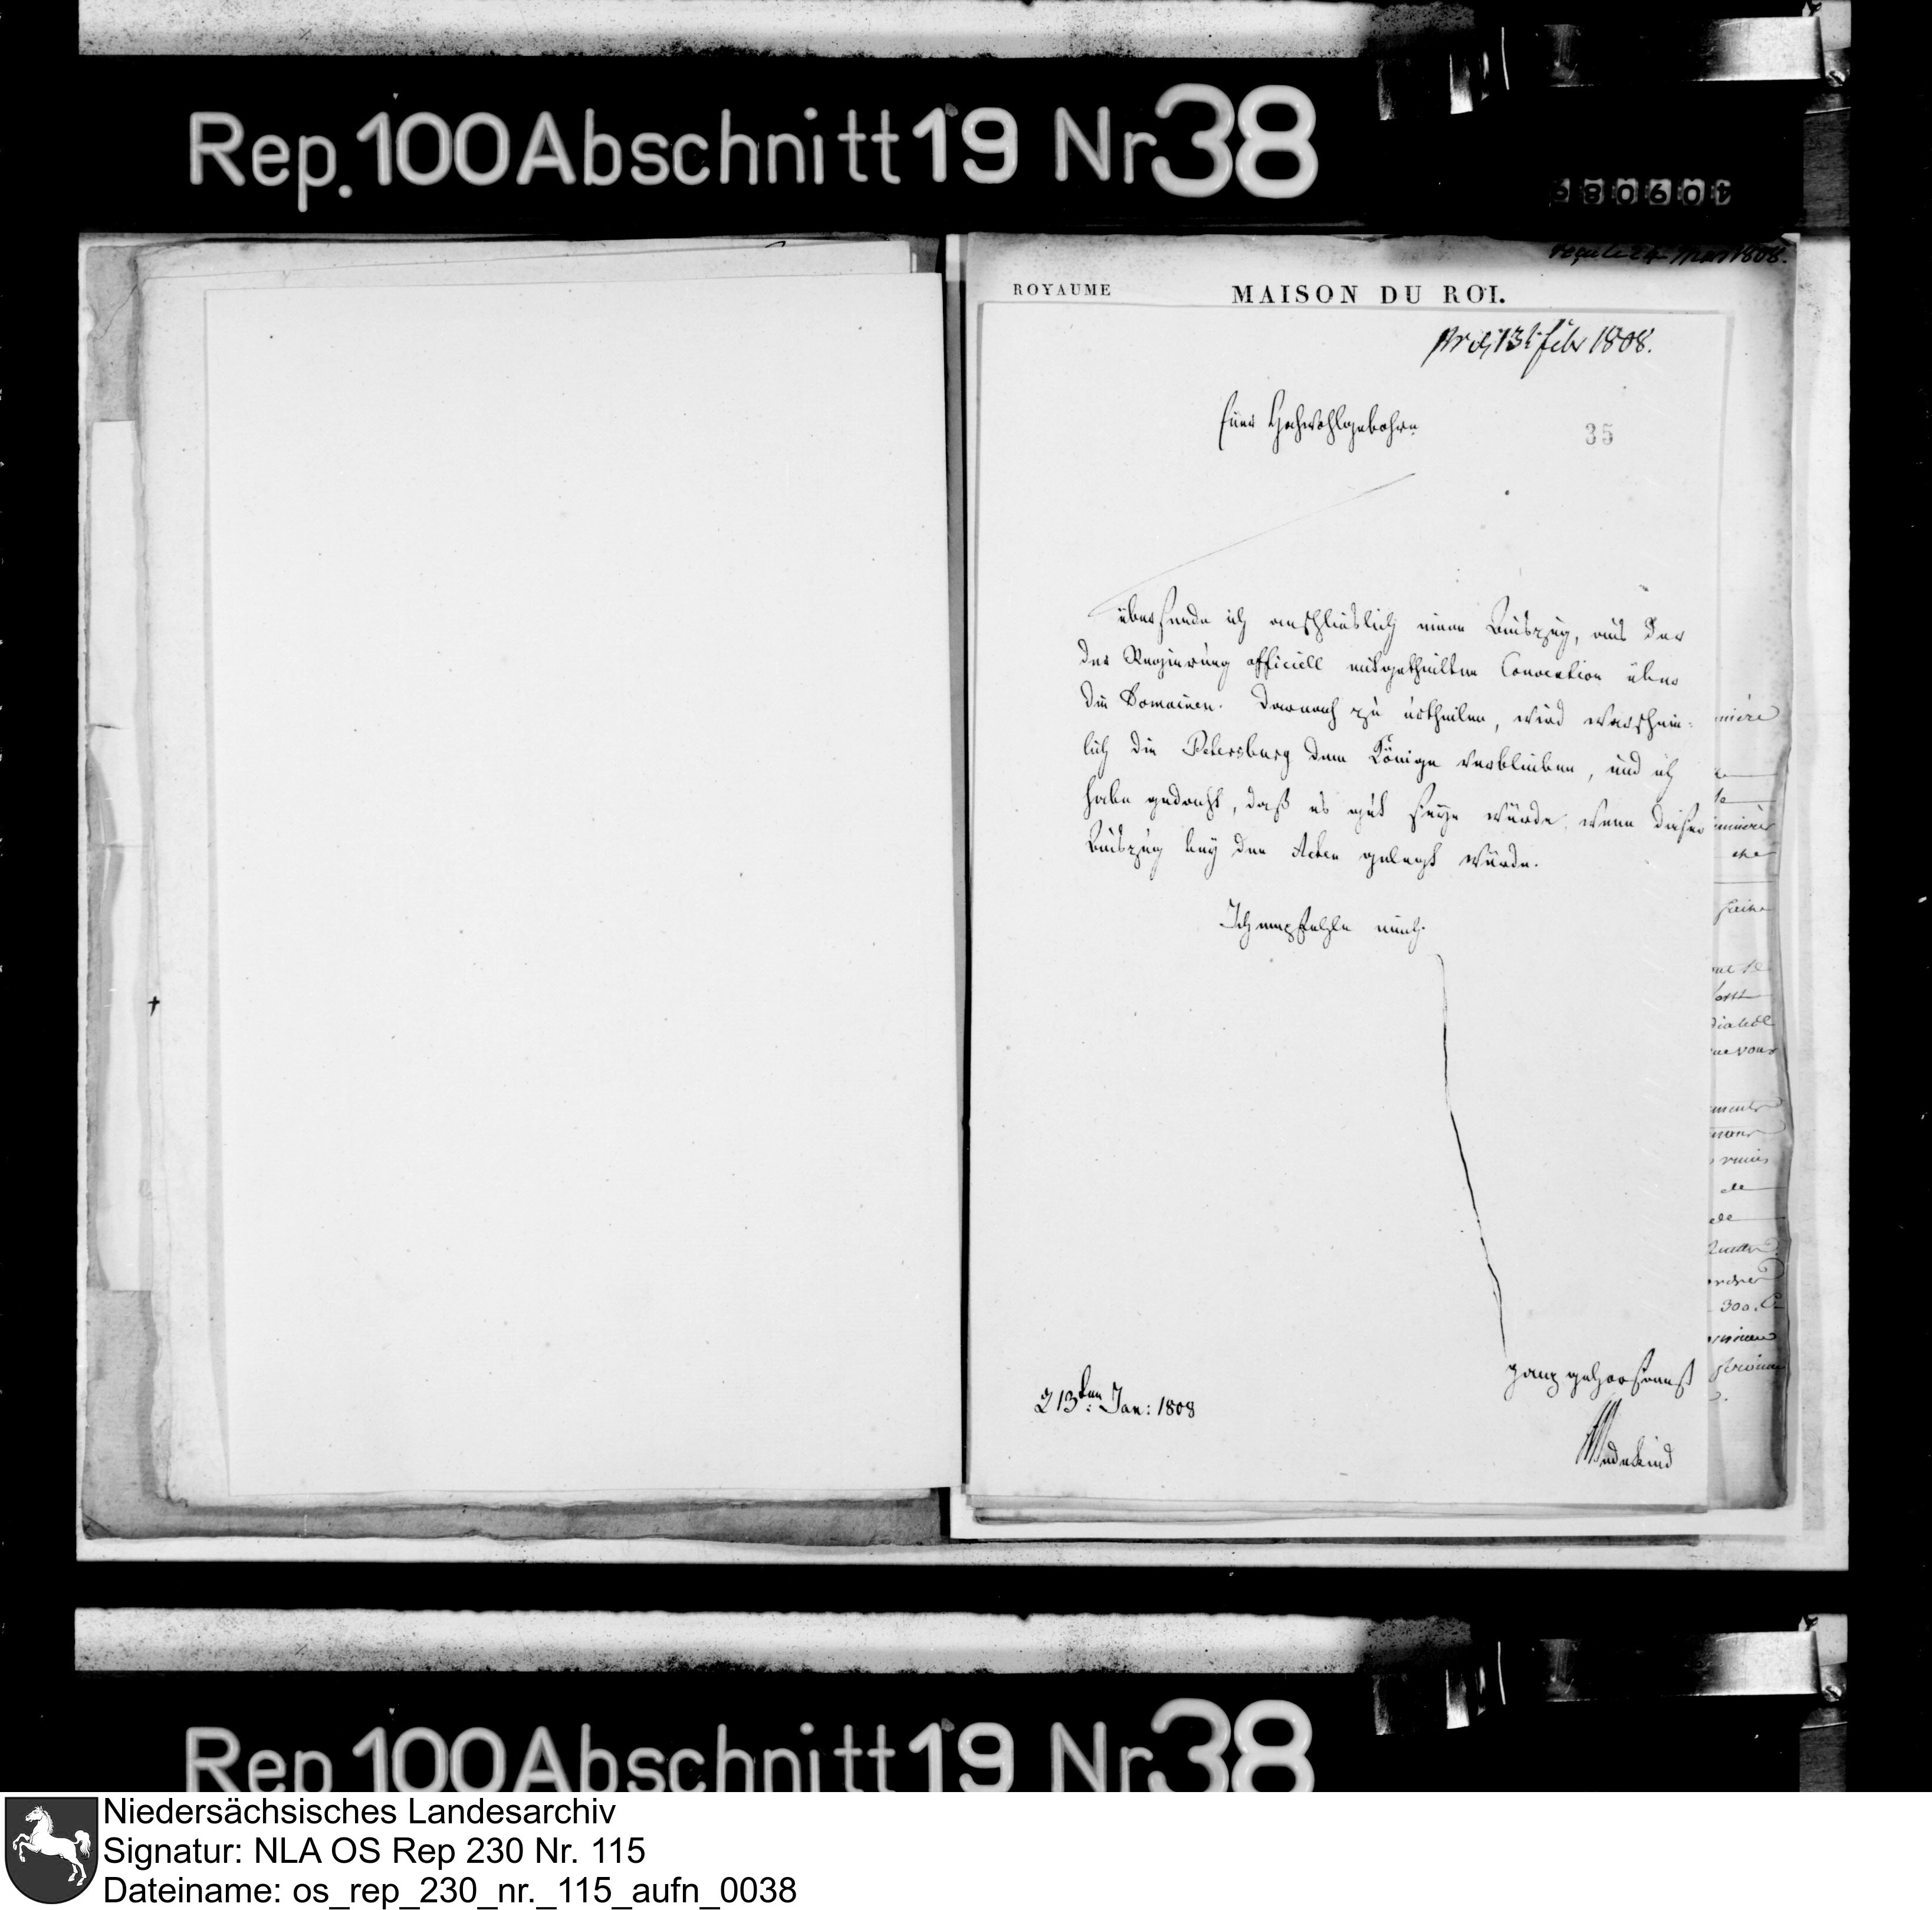 Rep. 100 Abschnitt 19 Nr 38
reçu le 24 Mars 1808.
ROYAUME MAISON DU ROI.
13t Febr 1808.
Euer Hochwohlgebohrn
35
übersende ich anschlieslich einen Auszug, aus der
der Regierung officiell mitgetheilten Convention über
die Domainen. Darnach zu urtheilen, wird warschein-
lich die Petersburg dem Könige verbleiben, und ich
habe gedacht, daß es gut seyn würde, wenn dieser
Auszug bey den Acten gelegt würde.
Ich empfehle mich.
ganz gehorsamst
13ten Jan: 1808
Wedekind
nière
de
faire
que vous
de
de
300.
Rep. 100 Abschnitt 19 Nr 38
Niedersächsisches Landesarchiv
Signatur: NLA OS Rep 230 Nr. 115
Dateiname: os_rep_230_nr._115_aufn_0038